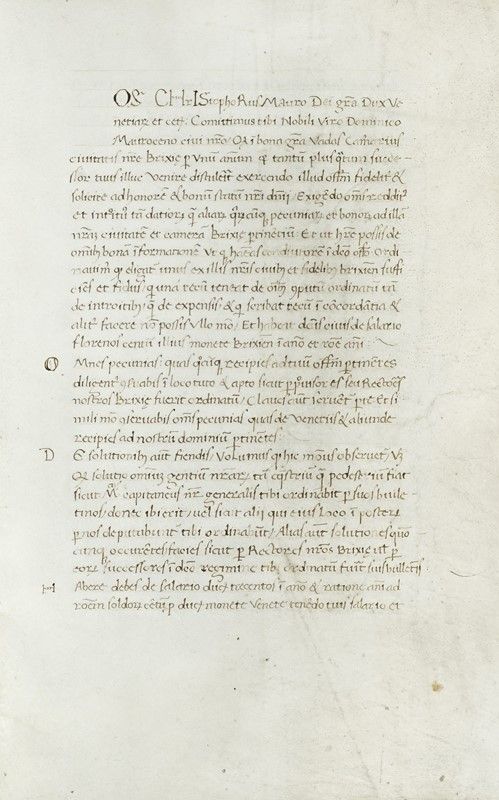 OS CHrIStophoRus Mauro Dei gra Dux Ve
netiar et cet. Comittimus tibi Nobili Viro Dominico
Mauroceno civi nro. Q i bona gra Vadas Camerius
civitatis nre Brixie p Vnum annum & tantu plus qtum succe-
ssor tuus illuc Venire distulerit exercendo illud offm fidelit &
solicite ad honore & bonum statum nri dnii. Exigedo oms reddit
et introit tā datior q aliar pecuniar et bonor ad illā
nram civitatem et camera Brixie ptinetiu. Et ut hre possis de
omnib bona iformatione Vi i deo offo Ordi
navim q eligat unus ex illis nris civib et fidelib brixien suffi
ciēs et fidus q una tecu teneat de oib oputu ordinatu tā
de introitib q de expensis & q scribat tecu i cōcordātia &
alit facere nō possis Vllo mo. Et habeat dcus civis de salario
florenos centu illius monete Brixien i ano et rōe ani.
O Mnes pecunias quas qcuq recipies ad tuu offm ptinetes
diligent oservabis i loco tuto & apto sicut p pvisor es seu Rectores
nostros Brixie fuerit ordinatu. Claves aut servet p te et si
mili mo oservabis oms pecunias quas de Venetiis & aliunde
recipies ad nostru dominiu ptinetes.
D E solutionib aut fiendis Volumus q hic modus observet Vz
Q solutio omniu gentiu nrar tā eqstriu q pedestriu fiat
sicut M capitaneus nr generalis tibi ordinabit p suos bulle-
tinos donec ibi erit, uel sicut alii qui eius loco i posteru
p nos deputabunt tibi ordinabut, Alias aut solutiones quo
cuq occurētes facies sicut p Rectores nros Brixie ul p
eor successores i deo regimine tibi ordinatu fuit suis bulletis.
H Abere debes de salario duc trecentos i ano & ratione ani ad
rōem soldor cētu p duc monete Venete tenēdo tuis salario et